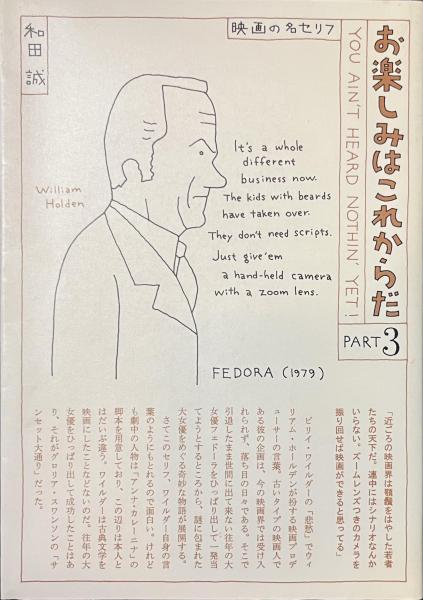 お楽しみはこれからだ
YOU AIN'T HEARD NOTHIN' YET!
PART3
映画の名セリフ
和田誠
William
Holden
It's a whole
different
business now.
The kids with beards
have taken over.
They don't need scripts.
Just give 'em
a hand-held camera
with a zoom lens.
FEDORA (1979)
「近ごろの映画界は顎髭をはやした若者
たちの天下だ。連中にはシナリオなんか
いらない。ズームレンズつきのカメラを
振り回せば映画ができると思ってる」
ビリイ・ワイルダーの「悲愁」でウィ
リアム・ホールデンが扮する映画プロデ
ューサーの言葉。古いタイプの映画人で
ある彼の企画は、今の映画界では受け入
れられず、落ち目の日々である。そこで
引退したまま世間に出て来ない往年の大
女優フェドーラをひっぱり出して一発当
てようとするところから、謎に包まれた
大女優をめぐる奇妙な物語が展開する。
さてこのセリフ、ワイルダー自身の言
葉のようにもとれるので面白い。けれど
も劇中の人物は「アンナ・カレーニナ」の
脚本を用意しており、この辺りは本人と
はだいぶ違う。ワイルダーは古典文学を
映画にしたことなどないのだ。往年の大
女優をひっぱり出して成功したことはあ
り、それがグロリア・スワンソンの「サ
ンセット大通り」だった。